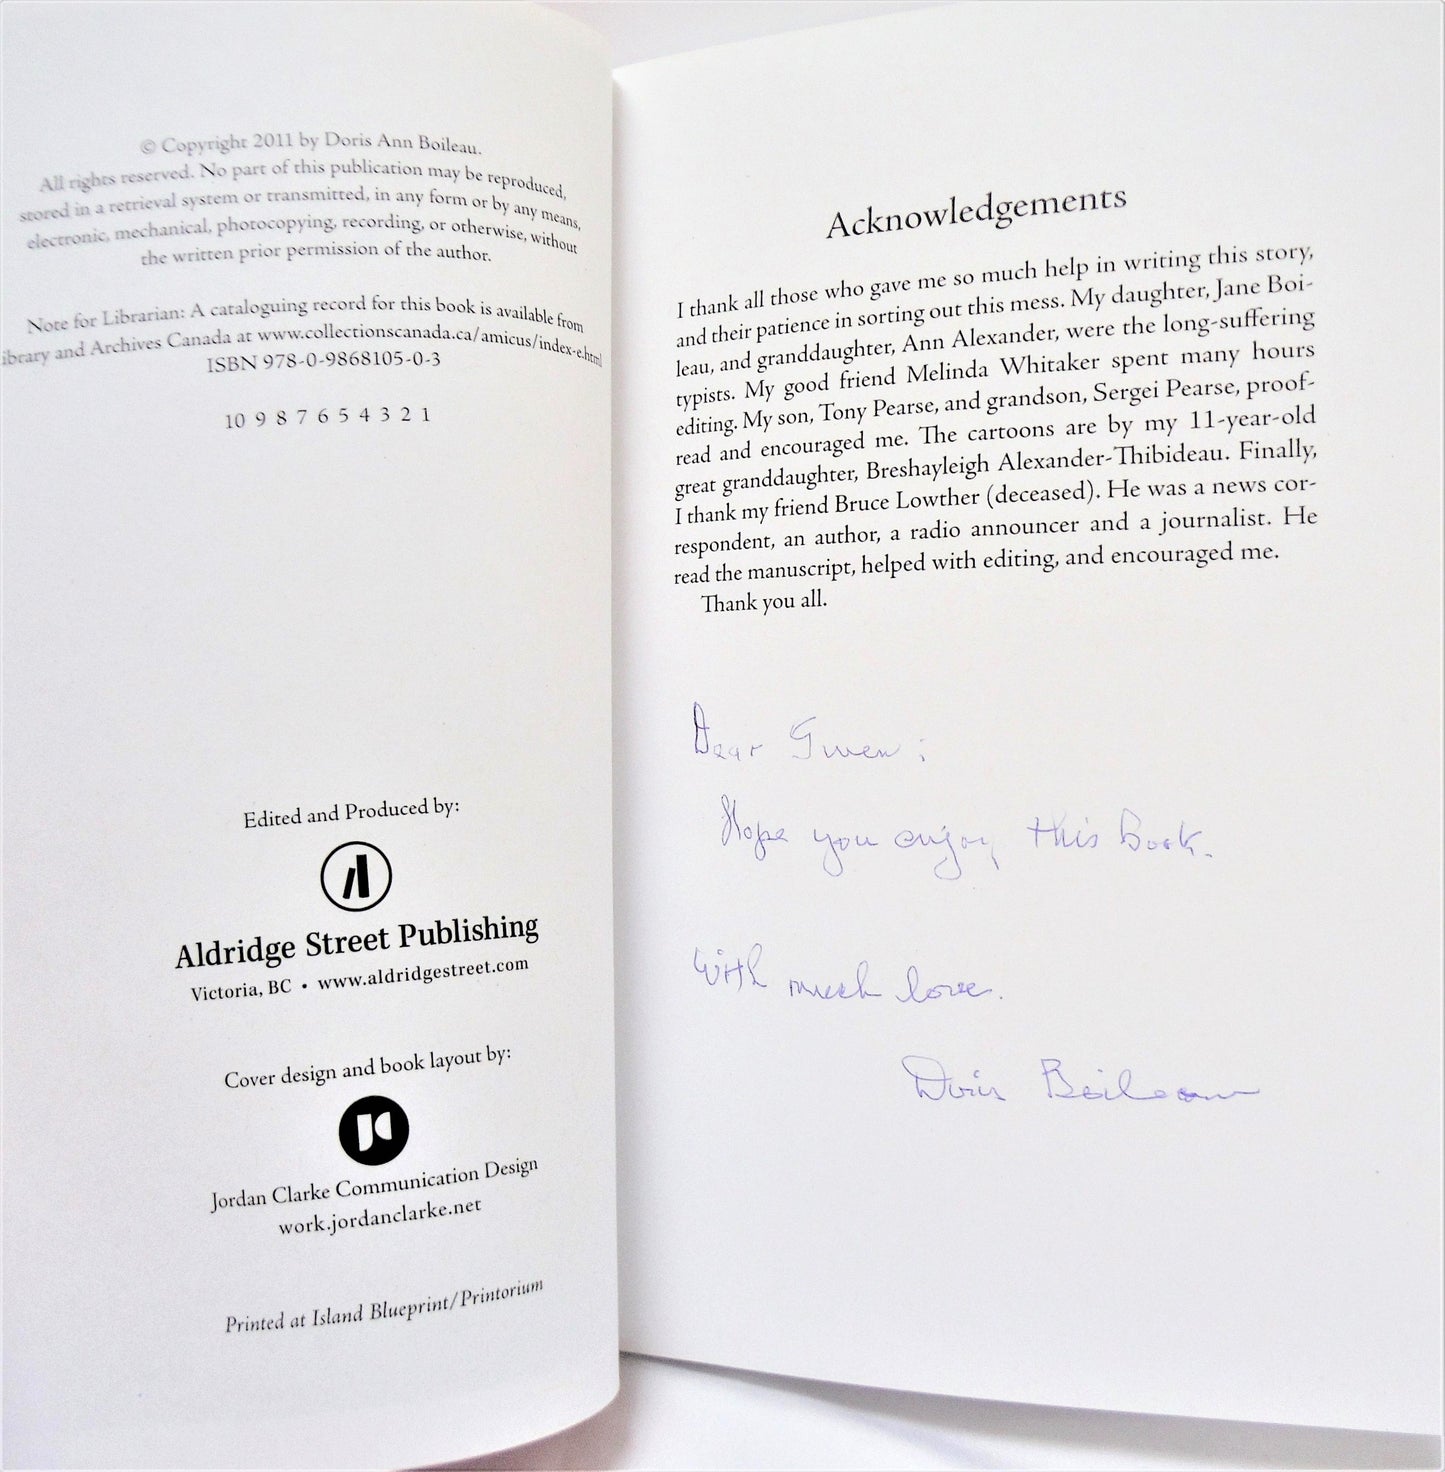 © Copyright 2011 by Doris Ann Boileau.
All rights reserved. No part of this publication may be reproduced,
stored in a retrieval system or transmitted, in any form or by any means,
electronic, mechanical, photocopying, recording, or otherwise, without
the written prior permission of the author.
Note for Librarian: A cataloguing record for this book is available from
ibrary and Archives Canada at www.collectionscanada.ca/amicus/index-e.html
ISBN 978-0-9868105-0-3
10 9 8 7 6 5 4 3 2 1
Edited and Produced by:
Aldridge Street Publishing
Victoria, BC • www.aldridgestreet.com
Cover design and book layout by:
Jordan Clarke Communication Design
work.jordanclarke.net
Printed at Island Blueprint/Printorium
Acknowledgements
I thank all those who gave me so much help in writing this story,
and their patience in sorting out this mess. My daughter, Jane Boi-
leau, and granddaughter, Ann Alexander, were the long-suffering
typists. My good friend Melinda Whitaker spent many hours
editing. My son, Tony Pearse, and grandson, Sergei Pearse, proof-
read and encouraged me. The cartoons are by my 11-year-old
great granddaughter, Breshayleigh Alexander-Thibideau. Finally,
I thank my friend Bruce Lowther (deceased). He was a news cor-
respondent, an author, a radio announcer and a journalist. He
read the manuscript, helped with editing, and encouraged me.
Thank you all.
Dear Gwen:
Hope you enjoy this Book.
With much love.
Doris Boileau